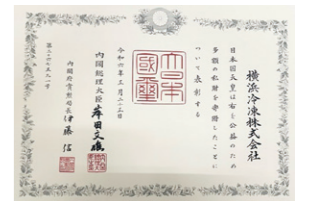 横浜冷凍株式会社
日本国天皇は右公益のため
多額の私財を寄附したことに
ついて表彰する
大日本
國璽
令和六年三月二十五日
内閣総理大臣 岸田文雄
内閣府賞勲局長 伊藤信